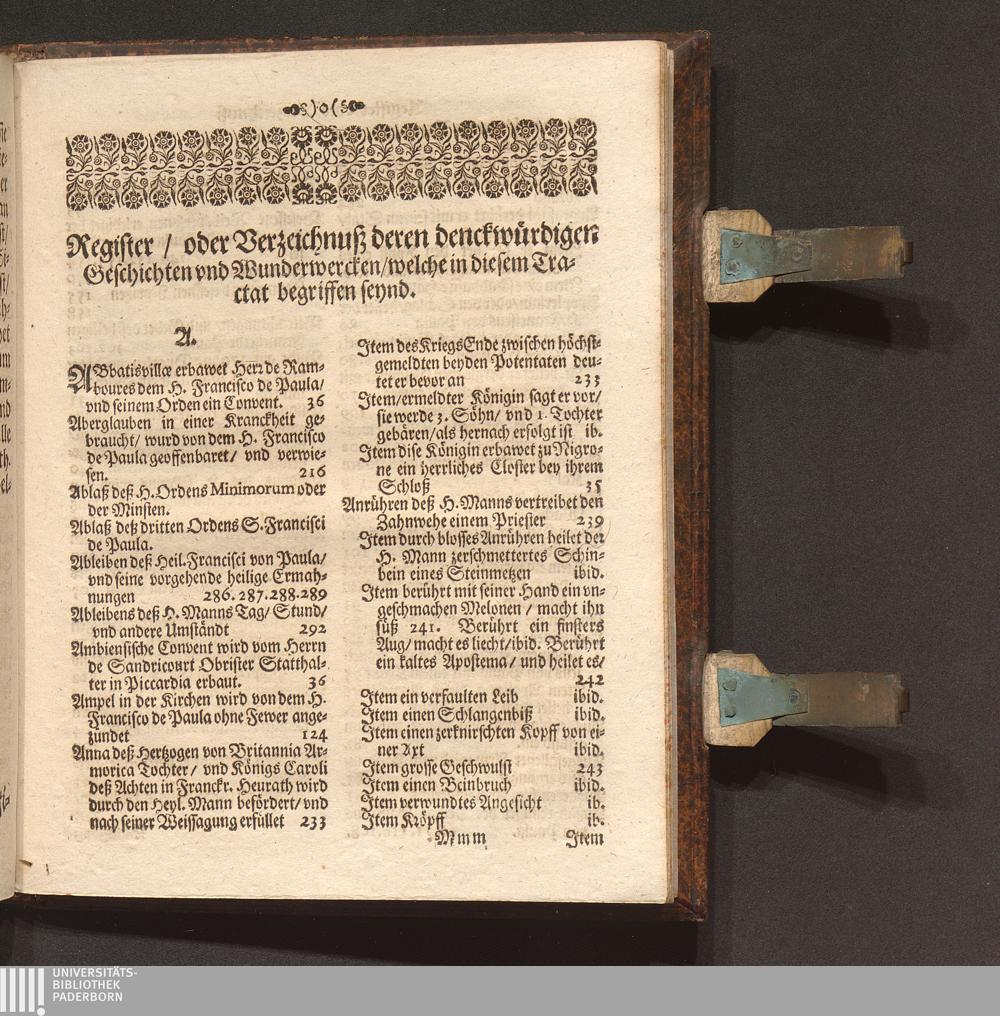 Register / oder Verzeichnuß deren denckwürdigen
Geschichten vnd Wunderwercken/welche in diesem Tra-
ctat begriffen seynd.
A.
ABbatisvillæ erbawet Herr de Ram-
boures dem H. Francisco de Paula/
vnd seinem Orden ein Convent. 36
Aberglauben in einer Kranckheit ge-
braucht/ wurd von dem H. Francisco
de Paula geoffenbaret/ vnd verwie-
sen. 216
Ablaß deß H. Ordens Minimorum oder
der Minsten.
Ablaß deß dritten Ordens S. Francisci
de Paula.
Ableiben deß Heil. Francisci von Paula/
vnd seine vorgehende heilige Ermah-
nungen 286. 287. 288. 289
Ableibens deß H. Manns Tag/ Stund/
vnd andere Umständt 292
Ambiensische Convent wird vom Herrn
de Sandricourt Obrister Statthal-
ter in Piccardia erbaut. 36
Ampel in der Kirchen wird von dem H.
Francisco de Paula ohne Fewer ange-
zündet 124
Anna deß Hertzogen von Britannia Ar-
morica Tochter/ vnd Königs Caroli
deß Achten in Franckr. Heurath wird
durch den Heyl. Mann befördert/ vnd
nach seiner Weissagung erfüllet 233
Item des Kriegs Ende zwischen höchst-
gemeldten beyden Potentaten deu-
tet er bevor an 233
Item/ermeldter Königin sagt er vor/
sie werde 3. Söhn/ vnd 1. Tochter
gebären/als hernach erfolgt ist ib.
Item dise Königin erbawet zu Nigro-
ne ein herrliches Closter bey ihrem
Schloß 35
Anrühren deß H. Manns vertreibet den
Zahnwehe einem Priester 239
Item durch blosses Anrühren heilet der
H. Mann zerschmettertes Schin-
bein eines Steinmetzen ibid.
Item berührt mit seiner Hand ein vn-
geschmachen Melonen / macht ihn
süß 241. Berührt ein finsters
Aug/ macht es liecht/ibid. Berührt
ein kaltes Apostema/ und heilet es/
242
Item ein verfaulten Leib ibid.
Item einen Schlangenbiß ibid.
Item einen zerknirschten Kopff von ei-
ner Axt ibid.
Item grosse Geschwulst 243
Item einen Beinbruch ibid.
Item verwundtes Angesicht ib.
Item Kröpff ib.
Mmm Item
UNIVERSITÄTS-
BIBLIOTHEK
PADERBORN